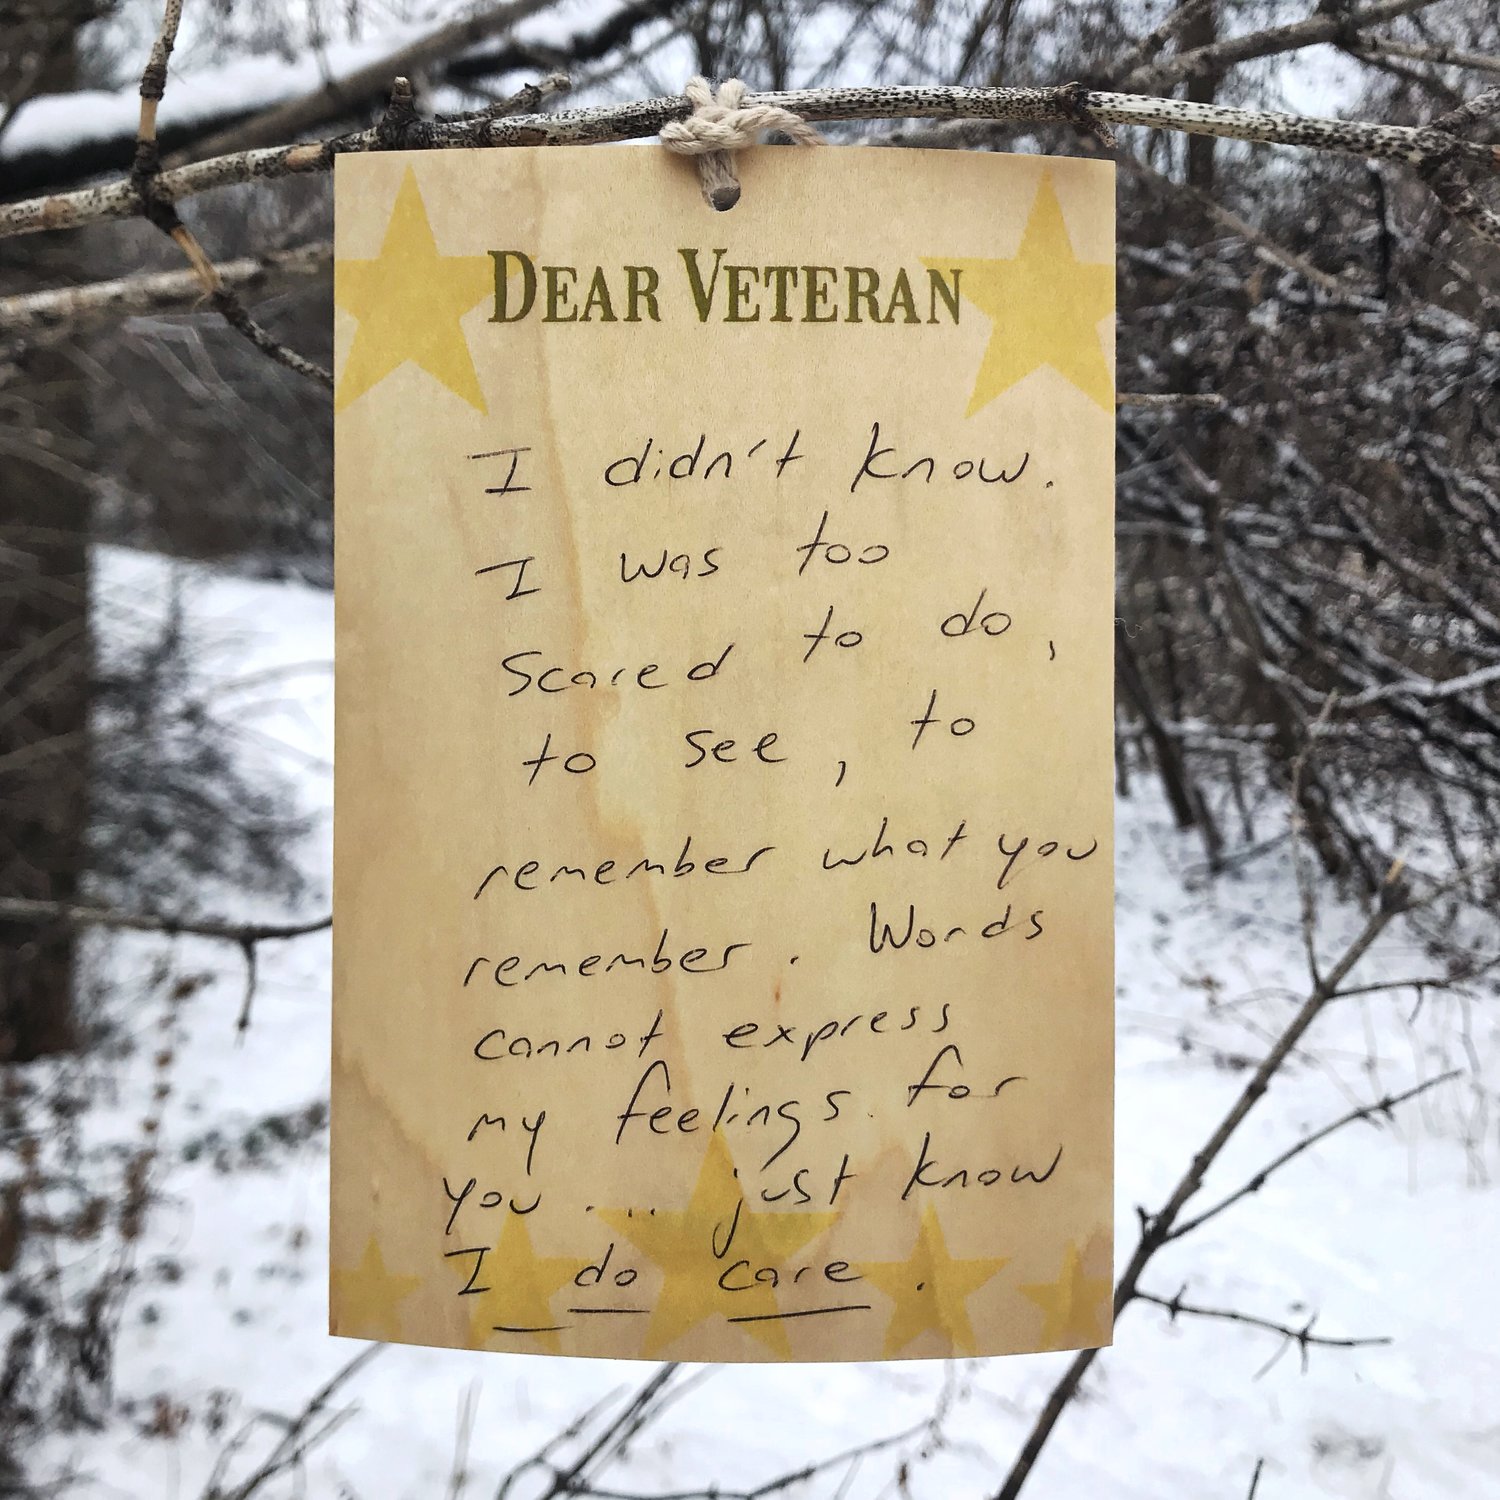 DEAR VETERAN
I didn't know.
I was too
scared to do,
to see, to
remember what you
remember. Words
cannot express
my feelings for
you .... just know
I do care.